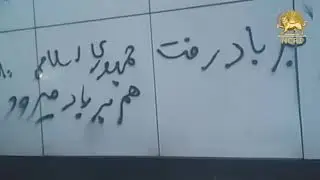 بر باد رفت جمهوری اسلامی
هم بر باد میرود
NCRI